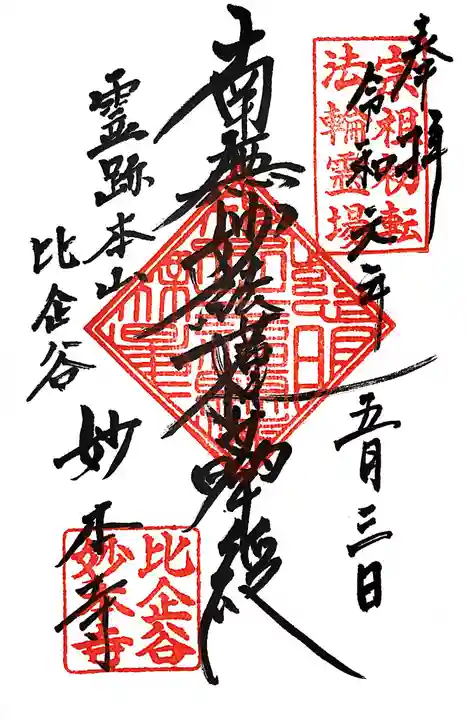 奉拝
令和元年
五月三日
宗祖初転
法輪霊場
南無妙法蓮華経
霊跡本山
比企谷
妙本寺
比企谷
妙本寺